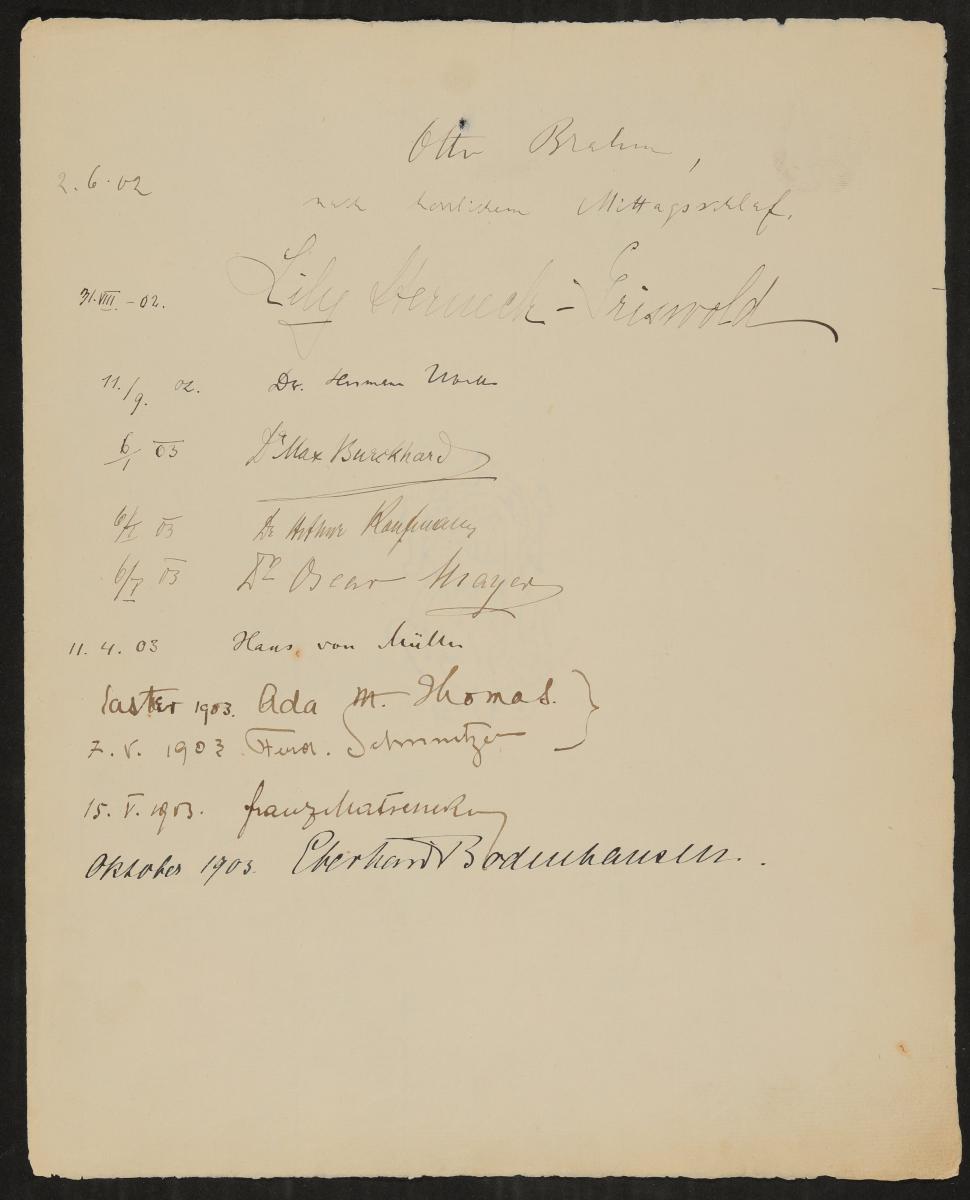 Otto Brahm,
2.6.02 nach herrlichem Mittagsschlaf.
31.VIII.-02. Lily Herneck-Griswold
11./9. 02. Dr. Hermann
6/1 03 Dr Max Burckhard
6/I 03 Dr Arthur Kaufmann
6/I 03 Dr Oscar Mayer
11. 4. 03 Hans von Müller
Easter 1903. Ada M. Thomas.
7. V. 1903 Ferd. Schmutzer
15. V. 1903. Franz Matsch
Oktober 1903. Eberhard Bodenhausen.